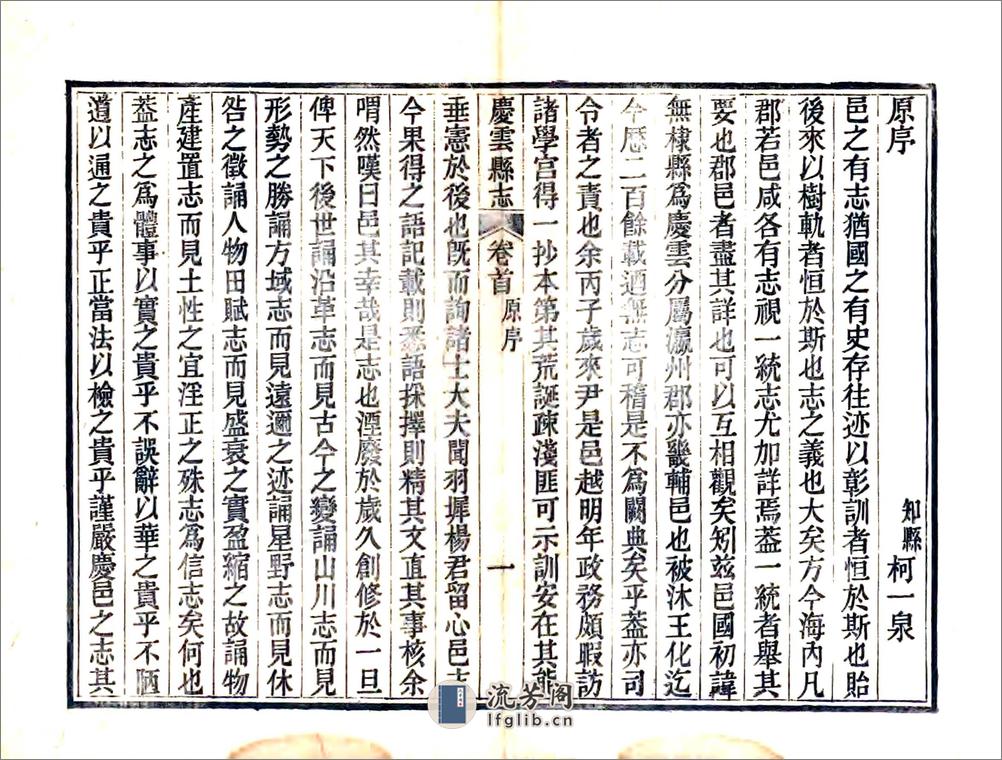 原序
知縣 柯一泉
邑之有志猶國之有史存往迹以彰訓者恒於斯也貽
後來以樹軌者恒於斯也志之義也大矣方今海內凡
郡若邑咸各有志視一統志尤加詳焉葢一統者舉其
要也郡邑者盡其詳也可以互相觀矣矧茲邑國初諱
無棣縣爲慶雲分屬瀛州郡亦畿輔邑也被沐王化迄
今歴二百餘載迺無志可稽是不爲闕典矣乎葢亦司
令者之責也余丙子歲來尹是邑越明年政務頗暇訪
諸學宮得一抄本第其荒誕疎淺匪可示訓安在其能
慶雲縣志 卷首 原序 一
垂憲於後也旣而詢諸士大夫聞羽墀楊君留心邑志
今果得之語記載則悉語採擇則精其文直其事核余
喟然嘆曰邑其幸哉是志也湮廢於歲久創修於一旦
俾天下後世誦沿革志而見古今之變誦山川志而見
形勢之勝誦方域志而見遠邇之迹誦星野志而見休
咎之徵誦人物田賦志而見盛衰之實盈縮之故誦物
產建置志而見土性之宜淫正之殊志爲信志矣何也
葢志之爲體事以實之貴乎不誤辭以華之貴乎不陋
道以通之貴乎正當法以檢之貴乎謹嚴慶邑之志其
流芳阁
lfglib.cn